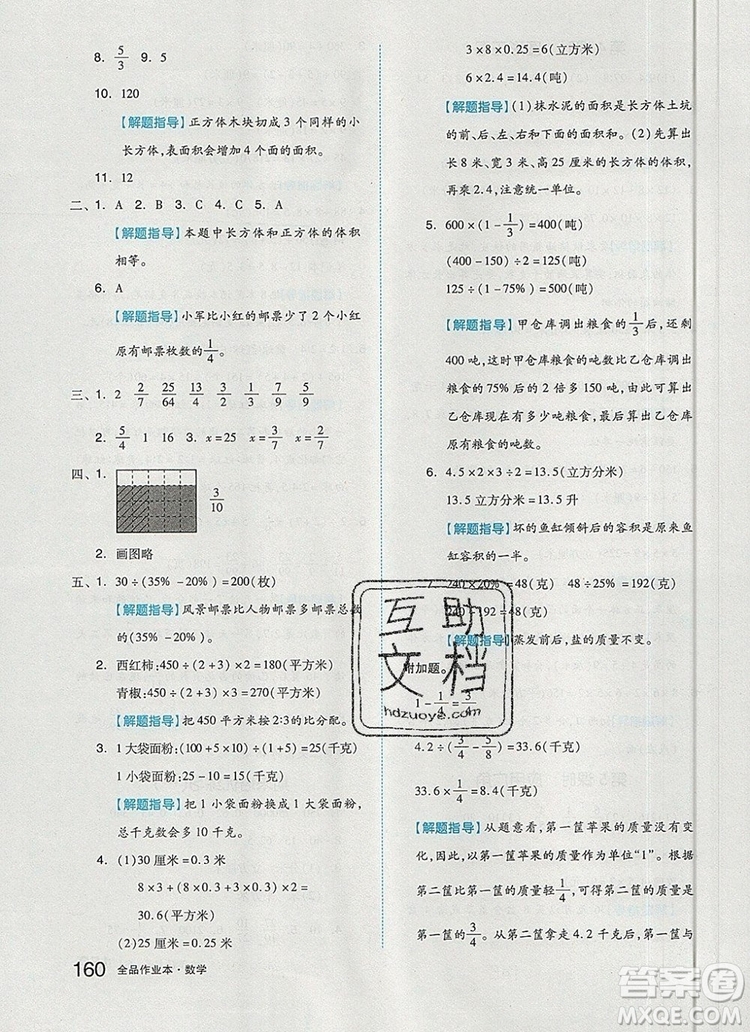 8. 5/3 9. 5
10. 120
【解题指导】正方体木块切成 3 个同样的小
长方体,表面积会增加 4 个面的面积。
11. 12
二、1. A 2. B 3. C 4. C 5. A
【解题指导】本题中长方体和正方体的体积
相等。
6. A
【解题指导】小军比小红的邮票少了 2 个小红
原有邮票枚数的1/4。
三、1. 2 2/7 25/64 14/13 2/3 4/9 3/4
2. 5/4 1 16 3. x=25 x=3/7 x=2/7
四、1. 3/10
2. 画图略
五、1. 30÷(35% -20%)=200(枚)
【解题指导】风景邮票比人物邮票多邮票总数
的(35% -20%)。
2. 西红柿:450÷(2+3)×2=180(平方米)
青椒:450÷(2+3)×3=270(平方米)
【解题指导】把 450 平方米按 2:3的比分配。
3. 1 大袋面粉:(100+5×10)÷(5+1)=25(千克)
1 小袋面粉:25-10=15(千克)
【解题指导】把 1 小袋面粉换成 1 大袋面粉,
总千克数会多 10 千克。
4. (1)30 厘米=0.3 米
8×3+(8×0.3+3×0.3)×2=
30.6(平方米)
(2)25 厘米=0.25 米
160 全品作业本·数学
3×8×0.25=6(立方米)
6×2.4=14.4(吨)
【解题指导】(1)抹水泥的面积是长方体土坑
的前、后、左、右和下面的面积和。(2)先算
长 8 米、宽 3 米、高 25 厘米的长方体的体积,
再乘 2.4,注意统一单位。
5. 600×(1-1/3)=400(吨)
(400-150)÷2=125(吨)
125÷(1-75%)=500(吨)
【解题指导】甲仓库调出粮食的1/3后,还剩
400 吨,这时甲仓库粮食的吨数比乙仓库
粮食的 75% 后的 2 倍多 150 吨,可以求出
乙仓库现在有多少吨粮食,再求出乙仓库
原有粮食的吨数。
6. 4.5×2×3÷2=13.5(立方分米)
13.5 立方分米=13.5 升
【解题指导】坏的鱼缸倾斜后的容积是原来鱼
缸容积的一半。
7. 240×20%=48(克) 48÷25%=192(克)
240-192=48(克)
【解题指导】蒸发前后,盐的质量不变。
附加题。
1-1/4=3/4
4.2÷(3/4-5/8)=33.6(千克)
33.6×1/4=8.4(千克)
【解题指导】从题意看,第一筐苹果的质量没有变
化,因此,以第一筐苹果的质量作为单位“1”。根据
第二筐比第一筐的质量轻1/4,可得第二筐的质量是
第一筐的3/4。第二筐卖出 4.2 千克后,第一筐与
互助
文档
hdzuoye.com
答案圈
MXQE.COM